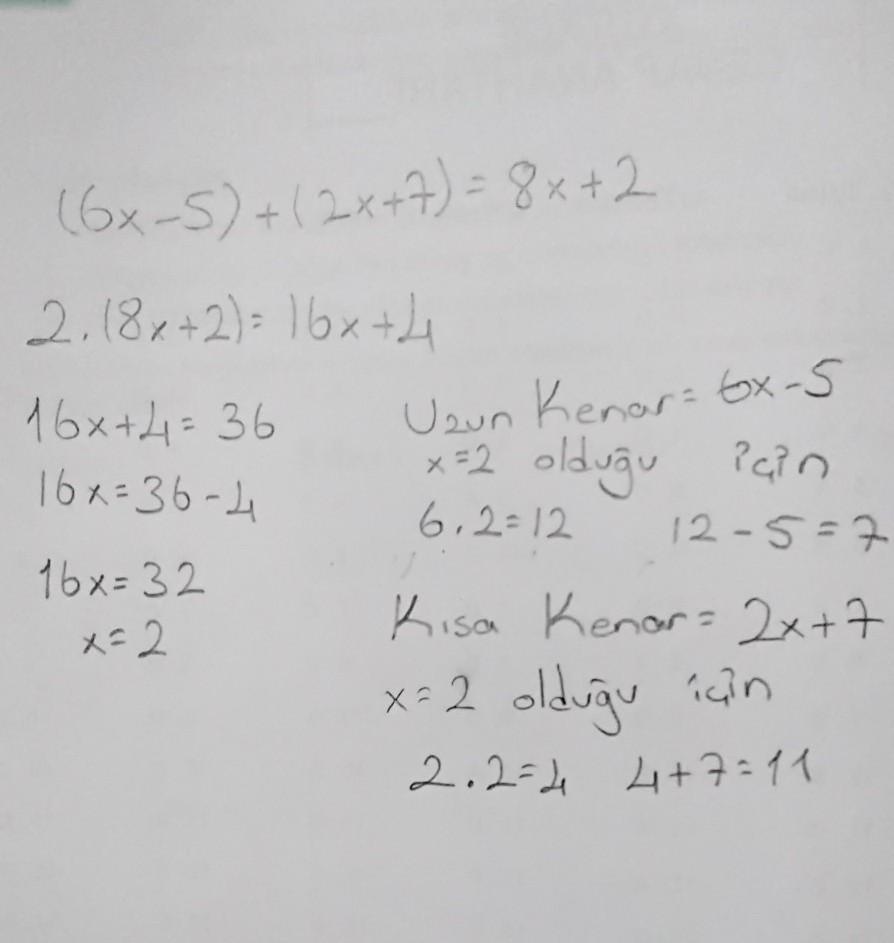 (6x-5)+(2x+7)=8x+2
2.(8x+2)=16x+4
16x+4=36
16x=36-4
16x=32
x=2
Uzun Kenar=6x-5
x=2 olduğu için
6.2=12 12-5=7
Kısa Kenar=2x+7
x=2 olduğu için
2.2=4 4+7=11